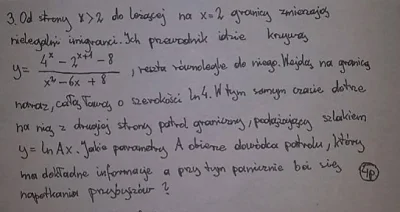 3. Od strony x>2 do leżącej na x=2 granicy zmierzają
nielegalni imigranci. Ich przewodnik idzie krzywą
y = (4^x - 2^(x+1) - 8)/(x² - 6x + 8), reszta równolegle do niego. Wejdą na granicę
naraz, całą ławą o szerokości ln4. W tym samym czasie dotrze
na nią z drugiej strony patrol graniczny, podążający szlakiem
y = ln Ax. Jakie parametry A obierze dowódca patrolu, który
ma dokładne informacje a przy tym panicznie boi się
napotkania przybyszów? 4p